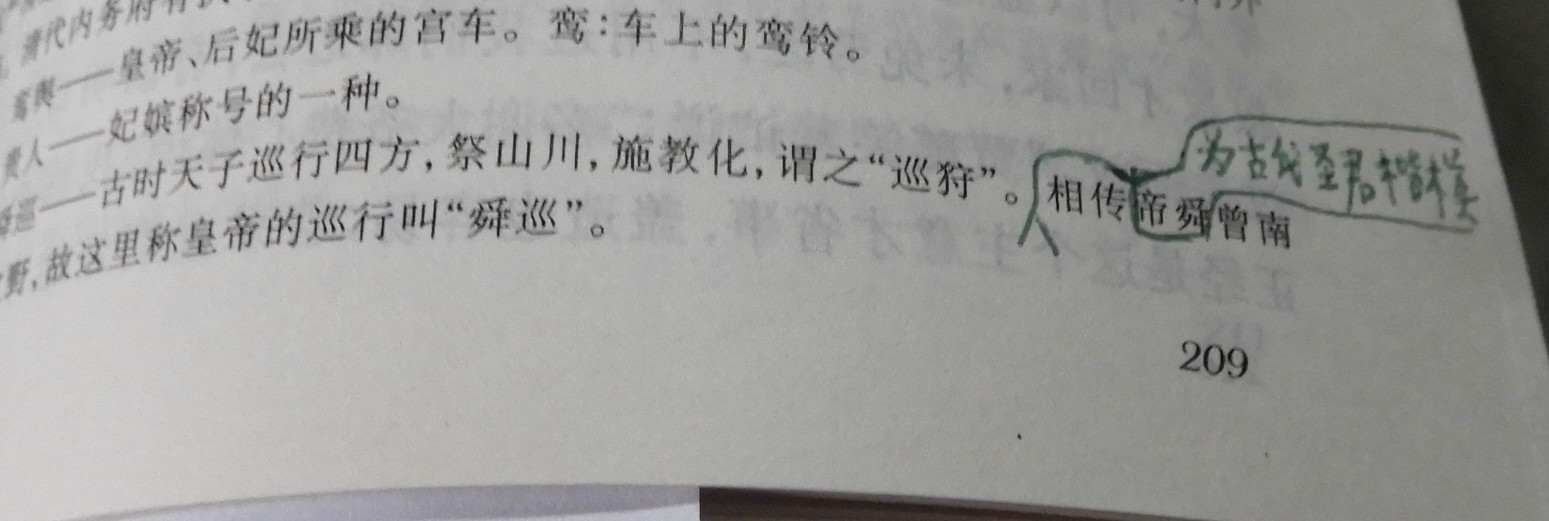 清代内务府有
鸾舆——皇帝、后妃所乘的宫车。鸾：车上的鸾铃。
贵人——妃嫔称号的一种。
舜巡——古时天子巡行四方，祭山川，施教化，谓之“巡狩”。相传帝舜曾南
为古代圣君楷模
野，故这里称皇帝的巡行叫“舜巡”。
209